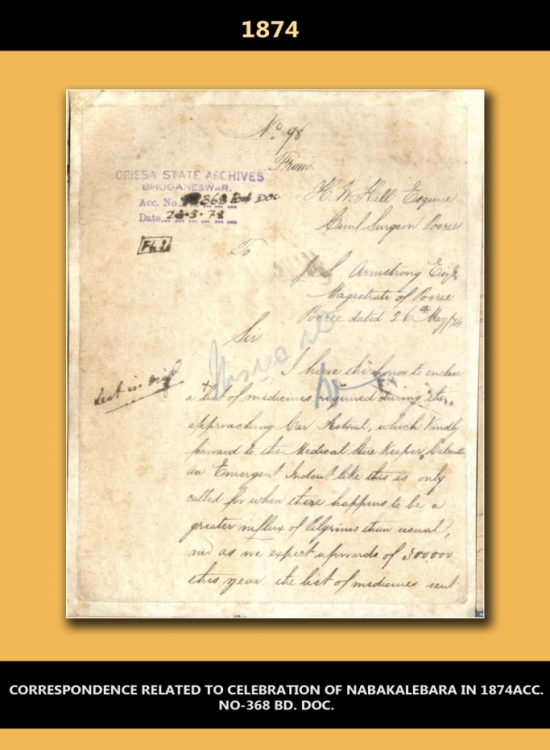 1874
No. 98
From
H. W. Hill Esquire
Civil Surgeon Pooree
ORISSA STATE ARCHIVES
BHUBANESWAR.
Acc. No. 368 Bd DOC.
Date
To
J. S. Armstrong Esqr
Magistrate of Pooree
Pooree dated 26th May/74
Sir
I have the honor to enclose
Sent in orig
a list of medicines required during the
approaching Car Festival, which kindly
forward to the Medical Store Keeper, Calcutta
an Emergent Indent like this is only
called for when there happens to be a
greater influx of Pilgrims than usual,
and as we expect upwards of 300000
this year the list of medicines sent
CORRESPONDENCE RELATED TO CELEBRATION OF NABAKALEBARA IN 1874ACC.
NO-368 BD. DOC.